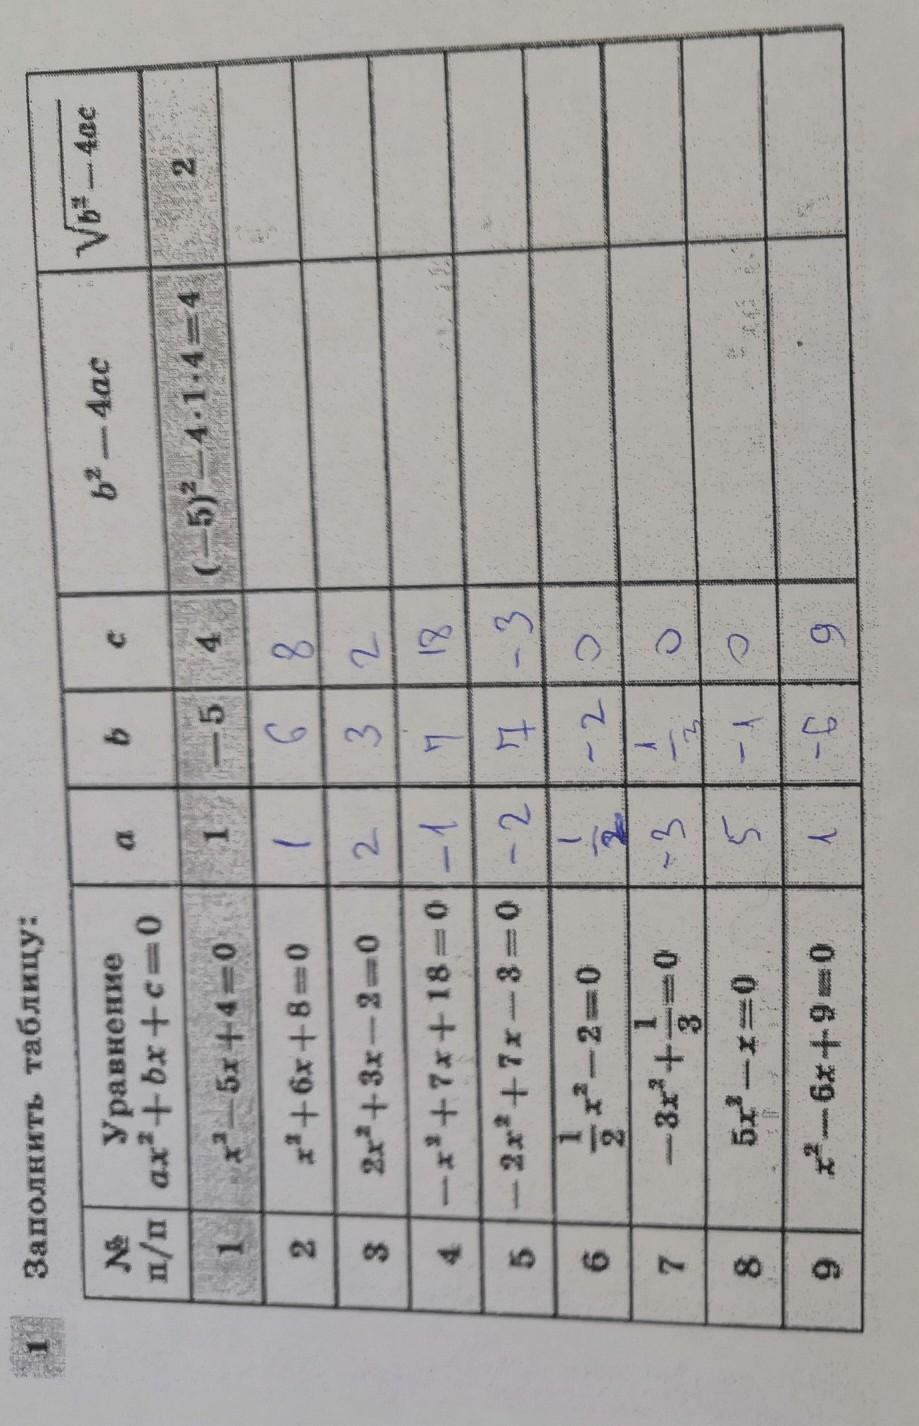 1 Заполнить таблицу:
№ п/п | Уравнение ax² + bx + c = 0 | a | b | c | b² — 4ac | √b² — 4ac
1 | x² — 5x + 4 = 0 | 1 | —5 | 4 | (—5)² — 4·1·4 = 4 | 2
2 | x² + 6x + 8 = 0 | 1 | 6 | 8
3 | 2x² + 3x — 2 = 0 | 2 | 3 | 2
4 | — x² + 7x + 18 = 0 | -1 | 7 | 18
5 | — 2x² + 7x — 3 = 0 | -2 | 7 | -3
6 | 1/2 x² — 2 = 0 | 1/2 | -2 | 0
7 | — 3x² + 1/3 = 0 | -3 | 1/3 | 0
8 | 5x² — x = 0 | 5 | -1 | 0
9 | x² — 6x + 9 = 0 | 1 | -6 | 9